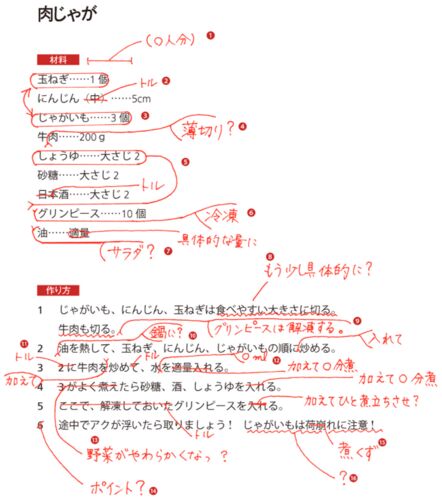 肉じゃが
(○人分) ❶
材料
玉ねぎ……1個
トル ❷
にんじん(中)……5cm
じゃがいも……3個 ❸
薄切り? ❹
牛肉……200g
しょうゆ……大さじ2 ❺
砂糖……大さじ2
トル
日本酒……大さじ2
グリンピース……10個
冷凍 ❻
油……適量
具体的な量に
サラダ? ❼
❽
もう少し具体的に?
作り方
1 じゃがいも、にんじん、玉ねぎは食べやすい大きさに切る。
牛肉も切る。
鍋に? ❿
グリンピースは解凍する。 ❾
⓫
トル
入れて
2 油を熱して、玉ねぎ、にんじん、じゃがいもの順に炒める。
トル
○ml ⓬
3 2に牛肉を炒めて、水を適量入れる。
加えて○分煮
加えて
4 3がよく煮えたら砂糖、酒、しょうゆを入れる。
加えて○分煮
5 ここで、解凍しておいたグリンピースを入れる。
加えてひと煮立ちさせ?
6 途中でアクが浮いたら取りましょう! じゃがいもは荷崩れに注意!
⓭
トル
野菜がやわらかくなっ?
煮くず ⓯
ポイント? ⓮
? ⓰